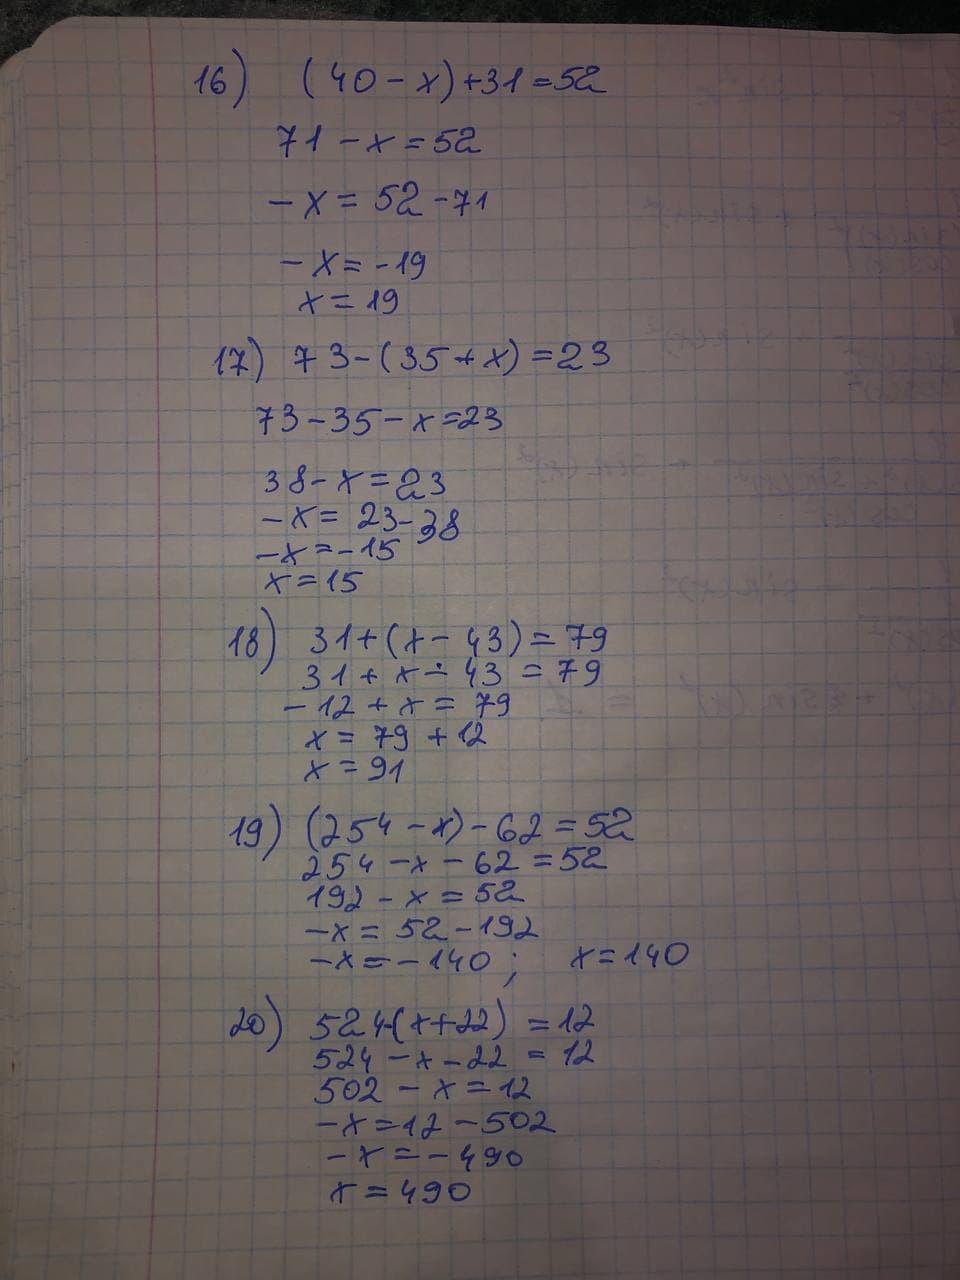 16) (40 - x) + 31 = 52
71 - x = 52
- x = 52 - 71
- x = - 19
x = 19
17) 73 - (35 + x) = 23
73 - 35 - x = 23
38 - x = 23
- x = 23 - 38
- x = - 15
x = 15
18) 31 + (x - 43) = 79
31 + x - 43 = 79
- 12 + x = 79
x = 79 + 12
x = 91
19) (254 - x) - 62 = 52
254 - x - 62 = 52
192 - x = 52
- x = 52 - 192
- x = - 140 ; x = 140
20) 524 - (x + 22) = 12
524 - x - 22 = 12
502 - x = 12
- x = 12 - 502
- x = - 490
x = 490